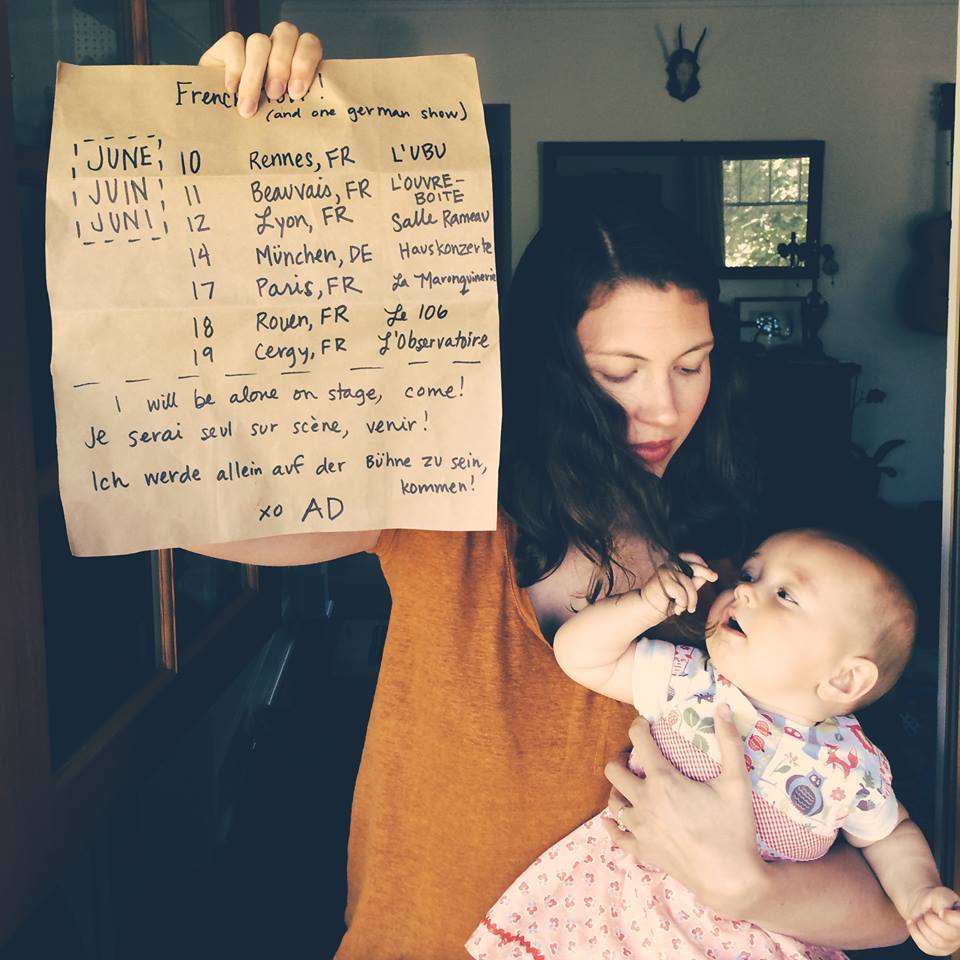 French !
(and one german show)
JUNE 10 Rennes, FR L'UBU
JUIN 11 Beauvais, FR L'OUVRE-BOITE
JUNI 12 Lyon, FR Salle Rameau
14 München, DE Hauskonzerte
17 Paris, FR La Maroquinerie
18 Rouen, FR Le 106
19 Cergy, FR L'Observatoire
I will be alone on stage, come!
Je serai seul sur scène, venir!
Ich werde allein auf der Bühne zu sein,
kommen!
xo AD